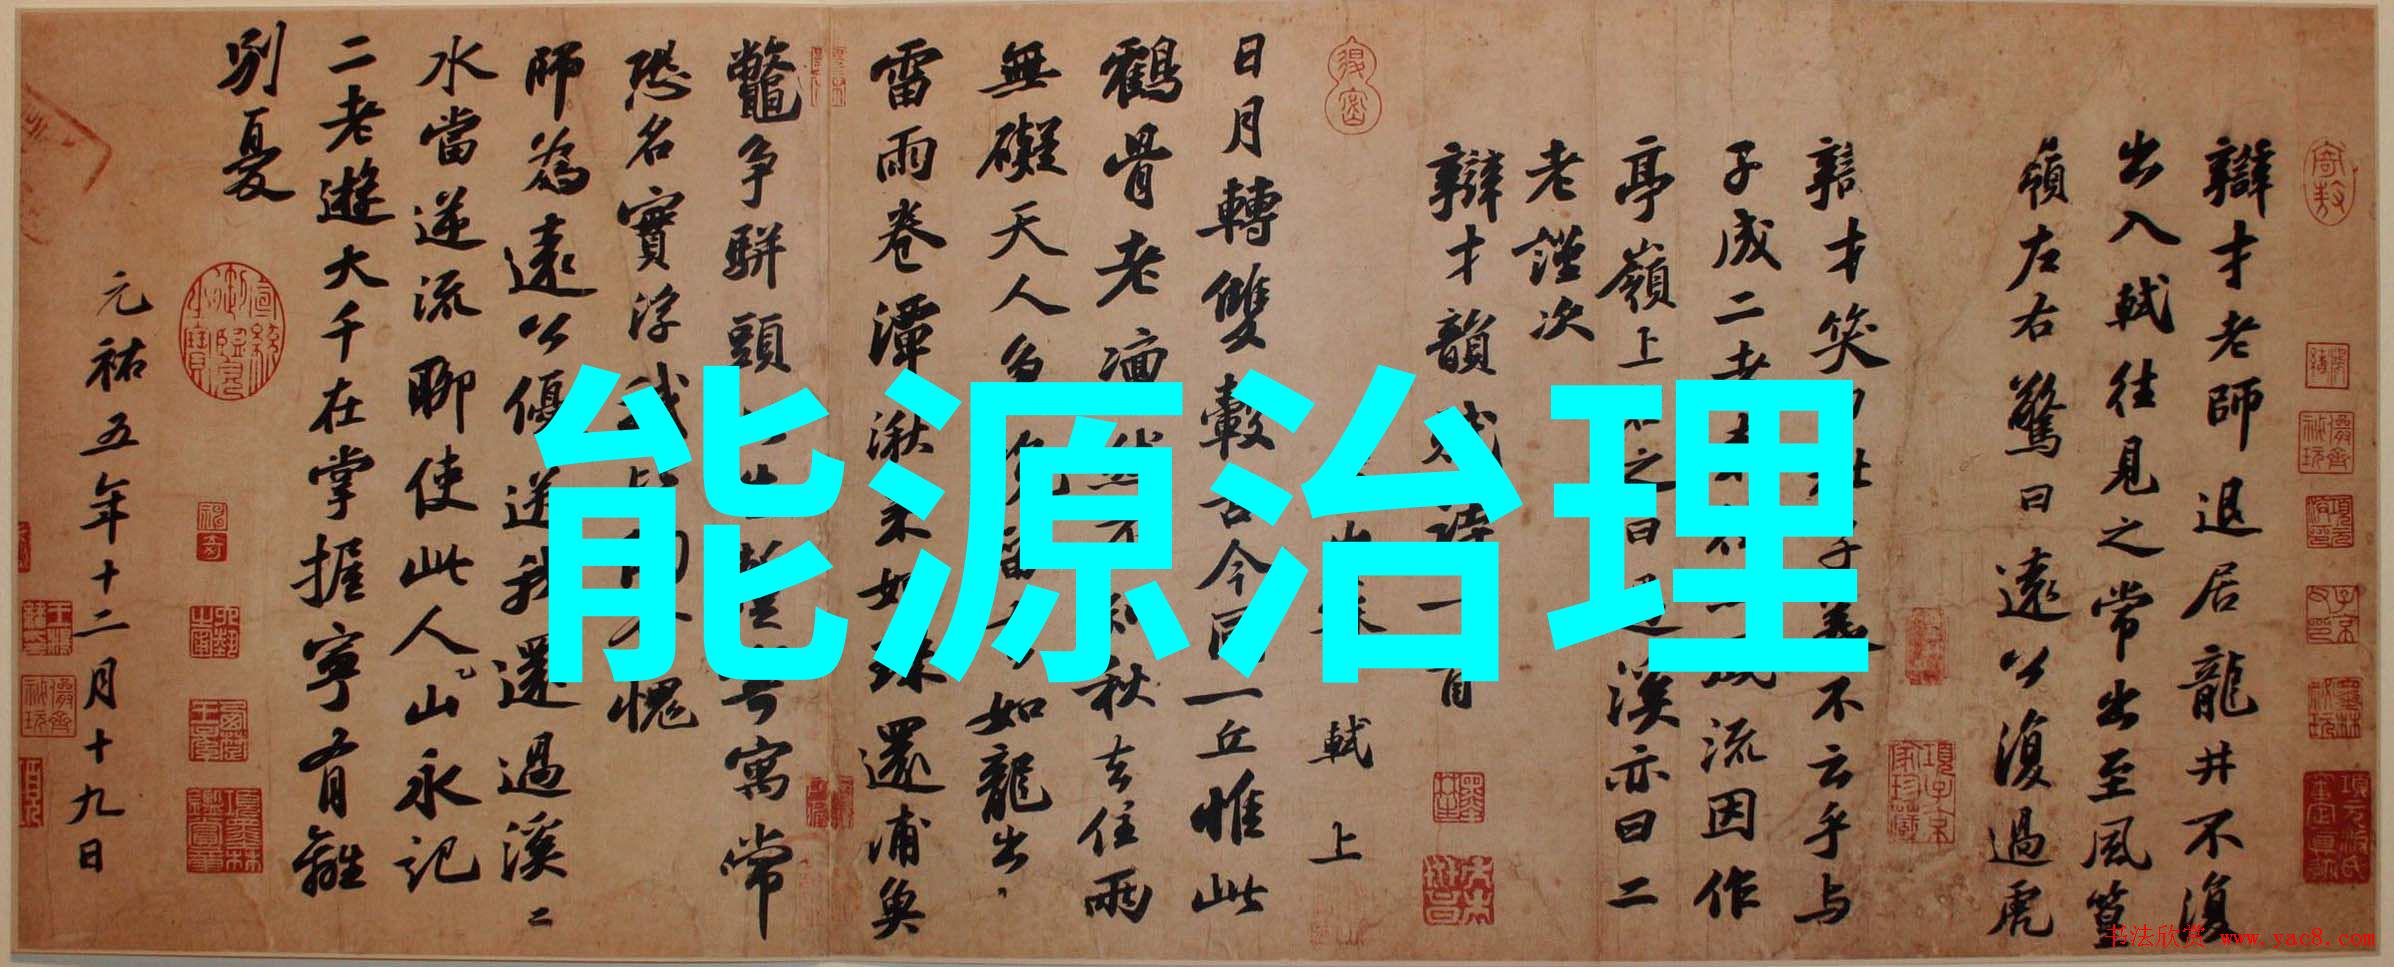 能源治理
辯才老師退居龍井不復
出入軾往見之常出至風篁
嶺左右驚曰遠公復過虎
辯才笑曰子美不云乎与
子成二老風流因作
亭嶺上之曰過溪亦曰二
老謹次
辯才韻賦詩一首
軾上
日月轉雙轂古今同一丘惟此
鶴骨老凛然不知秋去住兩
無礙天人如龍出
雷雨卷潭湫来如珠還浦魚
鼈争駢頭寓常
恐名實浮我愧
師為遠公優送我還過溪二
水當逆流聊使此人山永記
二老遊大千在掌握寧有離
別憂
元祐五年十二月十九日
书法欣赏 www.yac8.com